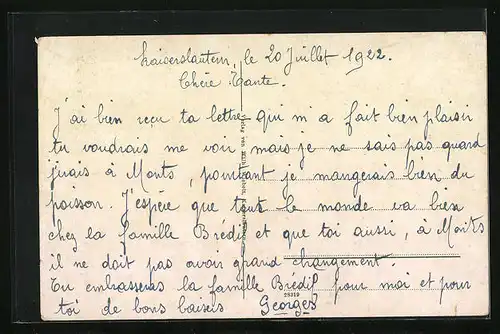 Kaiserslautern, le 20 Juillet 1922.
Chère Tante.
J'ai bien reçu ta lettre qui m'a fait bien plaisir
tu voudrais me voir mais je ne sais pas quand
j'irais à Monts, pourtant je mangerais bien du
poisson. J'espère que tout le monde va bien
chez la famille Brédif et que toi aussi, à Monts
il ne doit pas avoir grand changement.
Tu embrasseras la famille Brédif pour moi et pour
toi de bons baisers Georges
28319